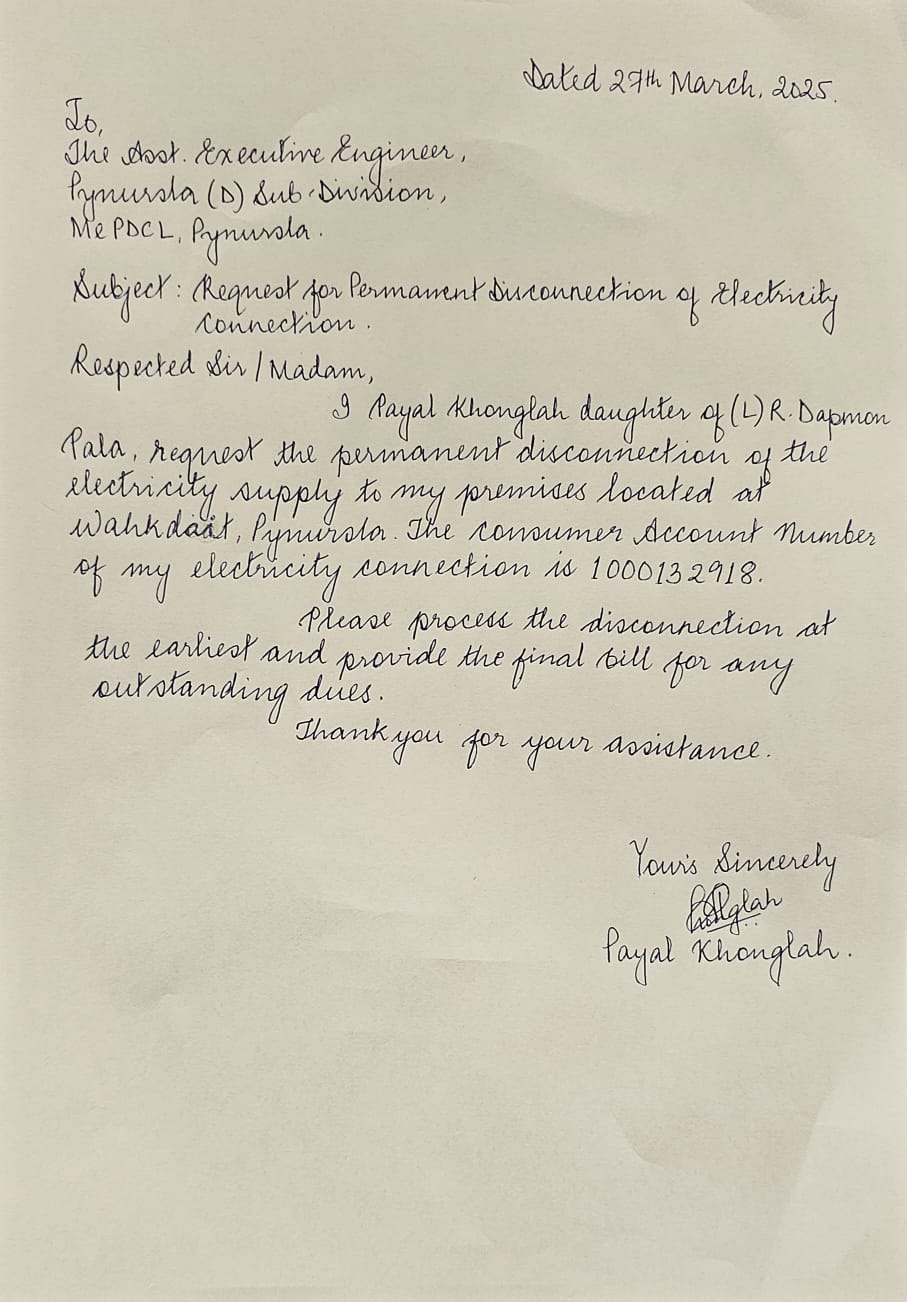 Dated 27th March, 2025.
To,
The Asst. Executive Engineer,
Pynursla (D) Sub-Division,
MePDCL, Pynursla.
Subject: Request for Permanent Disconnection of Electricity
Connection.
Respected Sir / Madam,
I Payal Khonglah daughter of (L) R. Dapmon
Pala, request the permanent disconnection of the
electricity supply to my premises located at
Wahkdait, Pynursla. The consumer Account Number
of my electricity connection is 1000132918.
Please process the disconnection at
the earliest and provide the final bill for any
outstanding dues.
Thank you for your assistance.
Your's Sincerely
Payal Khonglah.